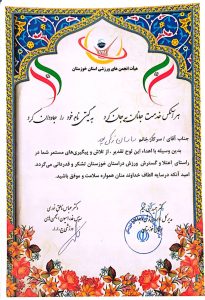 هیأت انجمن های ورزشی استان خوزستان
هر آنکس خدمت جانان به جان کرد به گیتی نام خود را جاودان کرد
جناب آقای / سرکار خانم
بدین وسیله با اهداء این لوح تقدیر، از تلاش و پیگیری‌های مستمر شما در
راستای اعتلا و گسترش ورزش در استان خوزستان تشکر و قدردانی می‌گردد.
امید آنکه در سایه الطاف خداوند منان همواره سلامت و موفق باشید.